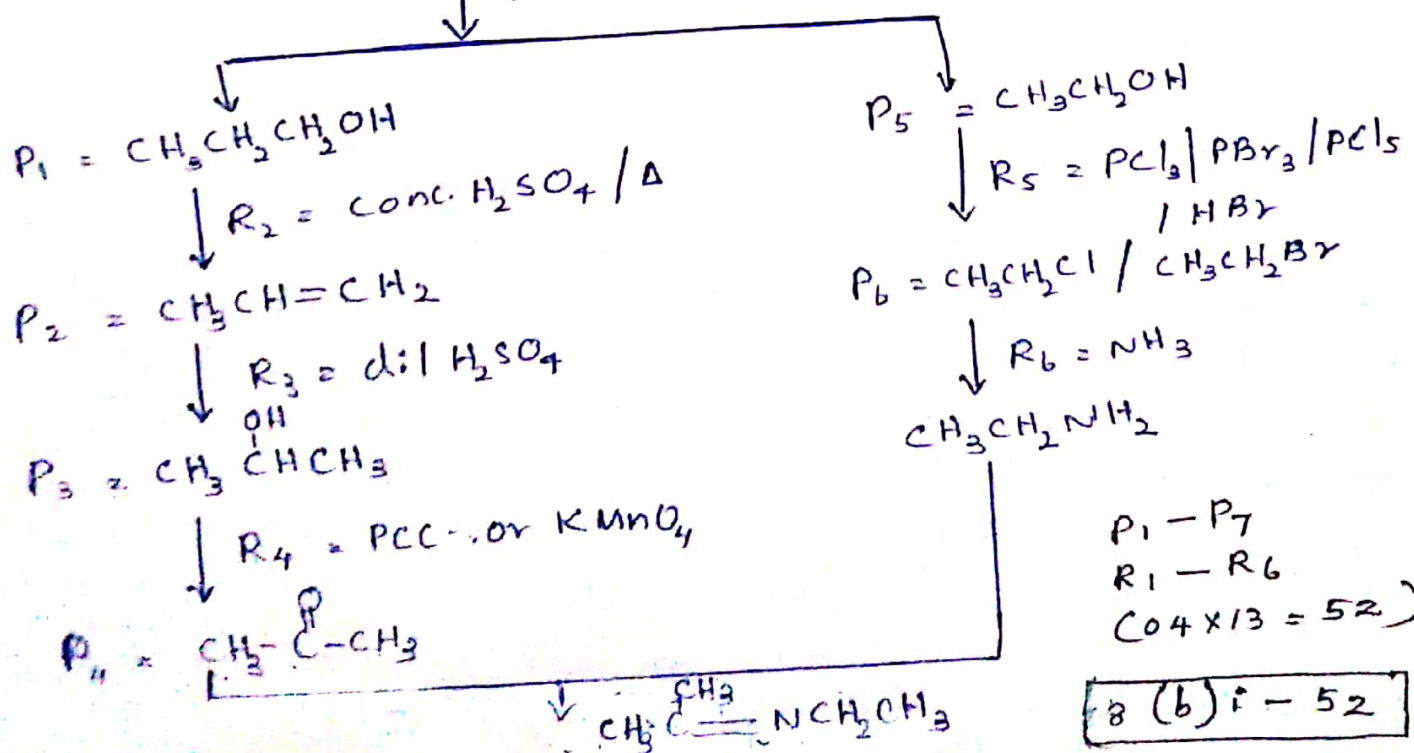 P₁ = CH₃CH₂CH₂OH
R₂ = conc. H₂SO₄ / Δ
P₂ = CH₃CH=CH₂
R₃ = dil H₂SO₄
OH
P₃ = CH₃CHCH₃
R₄ = PCC or KMnO₄
O
P₄ = CH₃-C-CH₃
P₅ = CH₃CH₂OH
R₅ = PCl₃ | PBr₃ / PCl₅
/ HBr
P₆ = CH₃CH₂Cl / CH₃CH₂Br
R₆ = NH₃
CH₃CH₂NH₂
CH₃
CH₃C=NCH₂CH₃
P₁ – P₇
R₁ – R₆
(04 × 13 = 52)
8 (b) i – 52